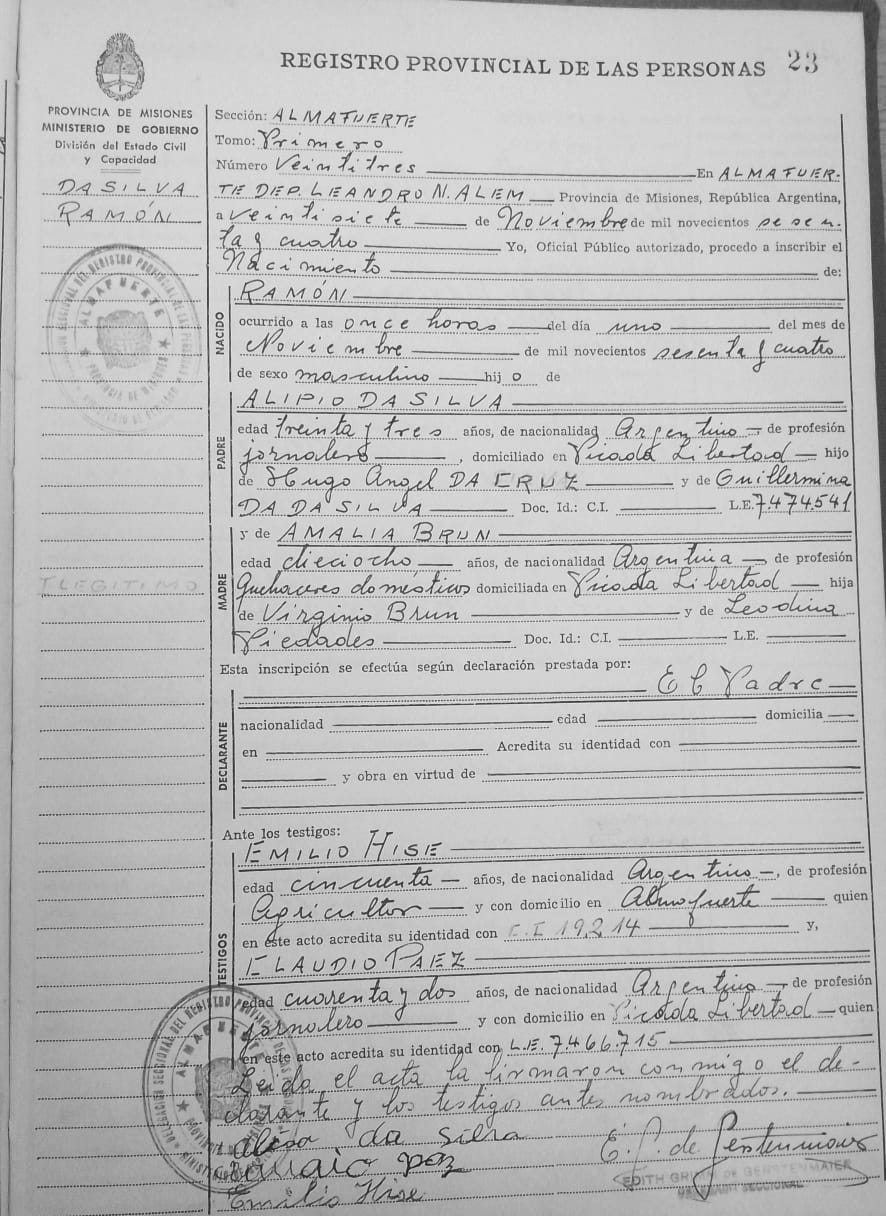 REGISTRO PROVINCIAL DE LAS PERSONAS 23
PROVINCIA DE MISIONES
MINISTERIO DE GOBIERNO
División del Estado Civil
y Capacidad
DA SILVA
RAMÓN
ILEGITIMO
Sección: ALMAFUERTE
Tomo: Primero
Número Veintitres En ALMAFUER-
TE DEP. LEANDRO N. ALEM Provincia de Misiones, República Argentina,
a veintisiete de Noviembre de mil novecientos sesen-
ta y cuatro Yo, Oficial Público autorizado, procedo a inscribir el
Nacimiento de:
NACIDO
RAMÓN
ocurrido a las once horas del día uno del mes de
Noviembre de mil novecientos sesenta y cuatro
de sexo masculino hijo de
PADRE
ALIPIO DA SILVA
edad treinta y tres años, de nacionalidad Argentino de profesión
jornalero, domiciliado en Picada Libertad hijo
de Hugo Angel DA CRUZ y de Guillermina
DA DA SILVA Doc. Id.: C.I. L.E. 7.474.541
MADRE
y de AMALIA BRUN
edad dieciocho años, de nacionalidad Argentina de profesión
Quehaceres domésticos domiciliada en Picada Libertad hija
de Virginio Brun y de Leodina
Piedades Doc. Id.: C.I. L.E.
Esta inscripción se efectúa según declaración prestada por:
El Padre
DECLARANTE
nacionalidad edad domicilia
en Acredita su identidad con
y obra en virtud de
Ante los testigos:
TESTIGOS
EMILIO HISE
edad cincuenta años, de nacionalidad Argentino, de profesión
Agricultor y con domicilio en Almafuerte quien
en este acto acredita su identidad con C.I 19.214 y,
CLAUDIO PAEZ
edad cuarenta y dos años, de nacionalidad Argentino de profesión
jornalero y con domicilio en Picada Libertad quien
en este acto acredita su identidad con L.E. 7.466.715
Leida el acta la firmaron conmigo el de-
clarante y los testigos antes nombrados.
da silva
paz
Emilio Hise
E. G. de Gerstenmaier
EDITH DE GERSTENMAIER
SECCIONAL